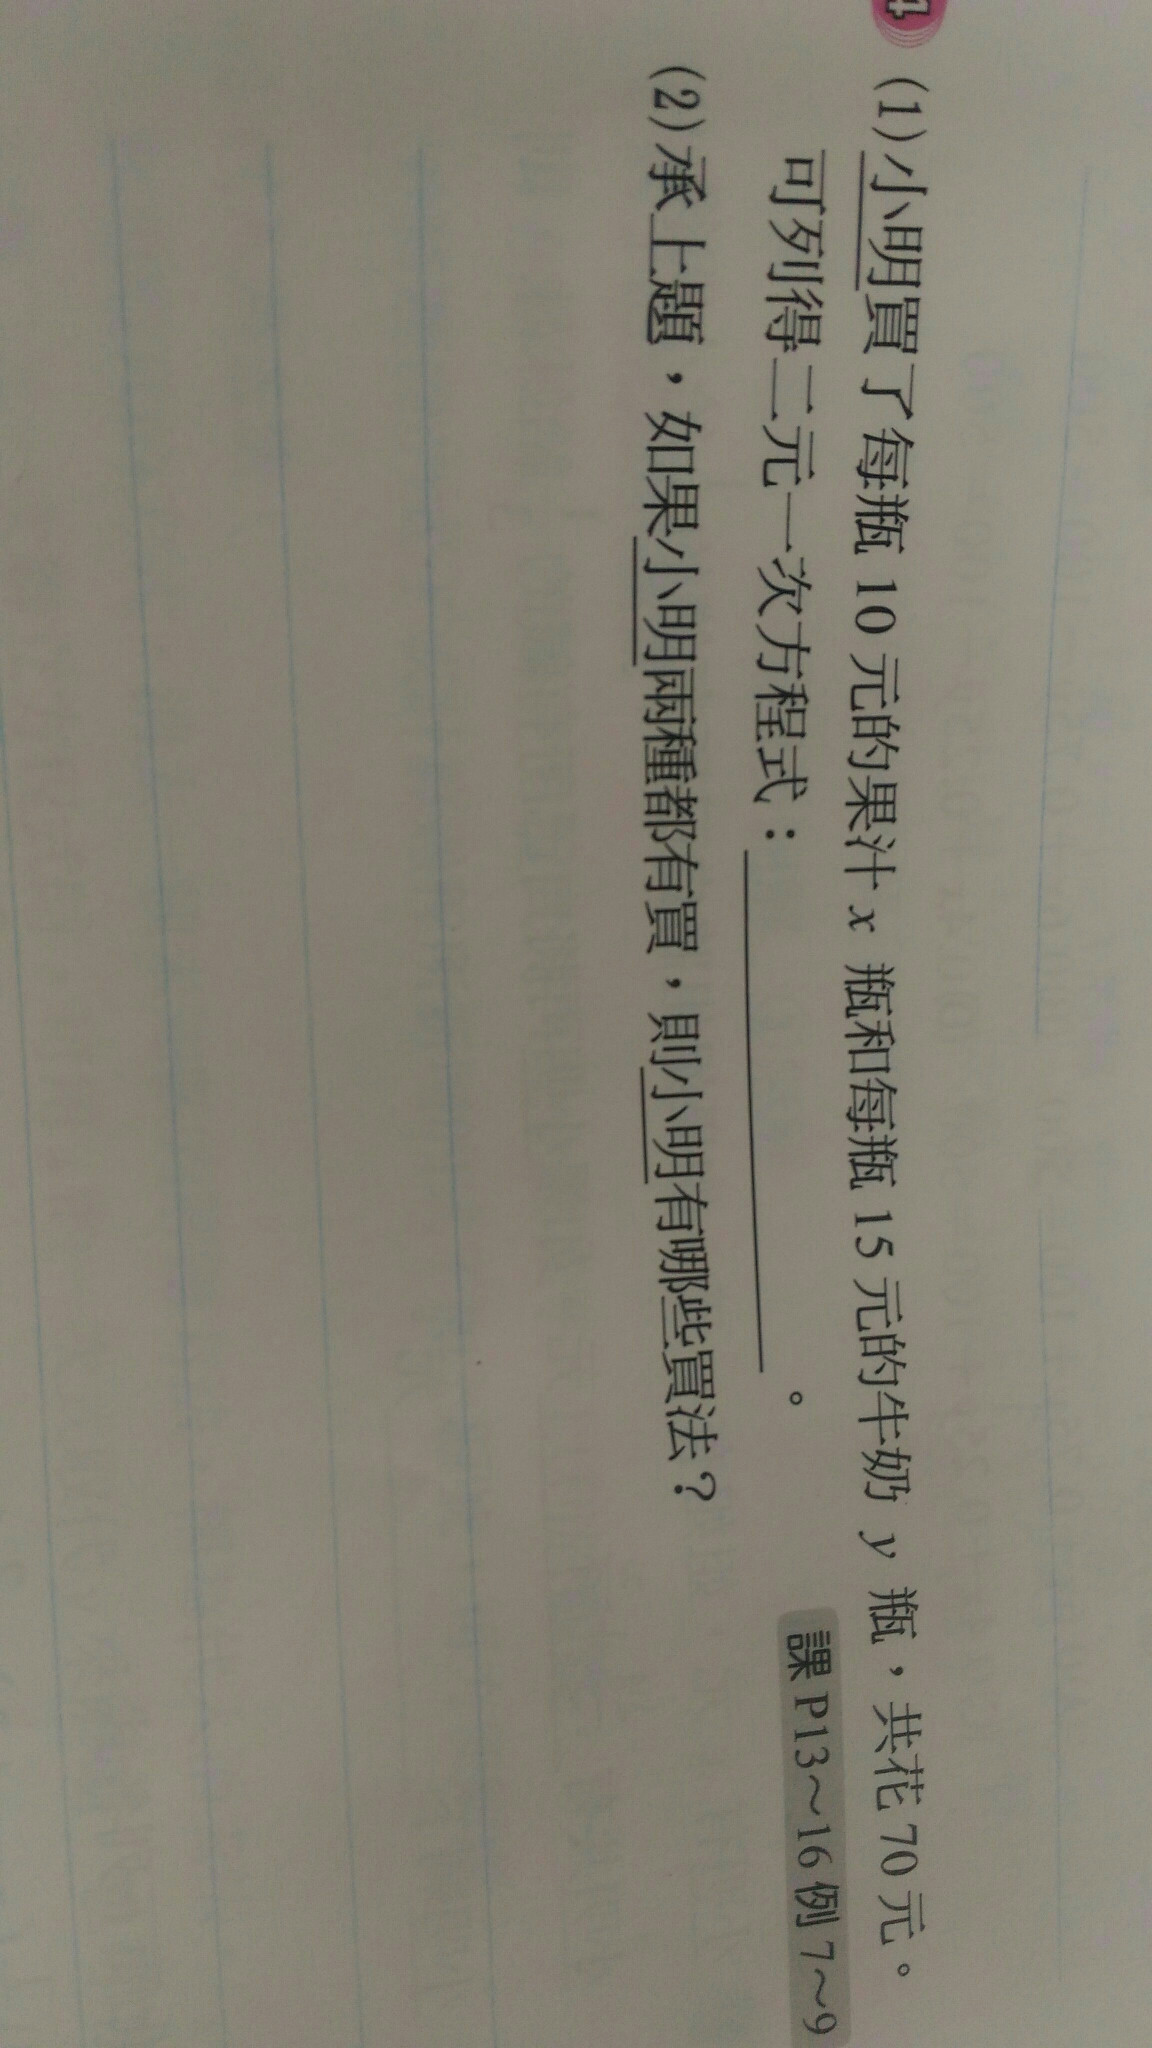 4
(1)小明買了每瓶 10 元的果汁 x 瓶和每瓶 15 元的牛奶 y 瓶，共花 70 元。
可列得二元一次方程式：＿＿＿＿＿＿＿＿。
課 P13～16 例 7～9
(2)承上題，如果小明兩種都有買，則小明有哪些買法？